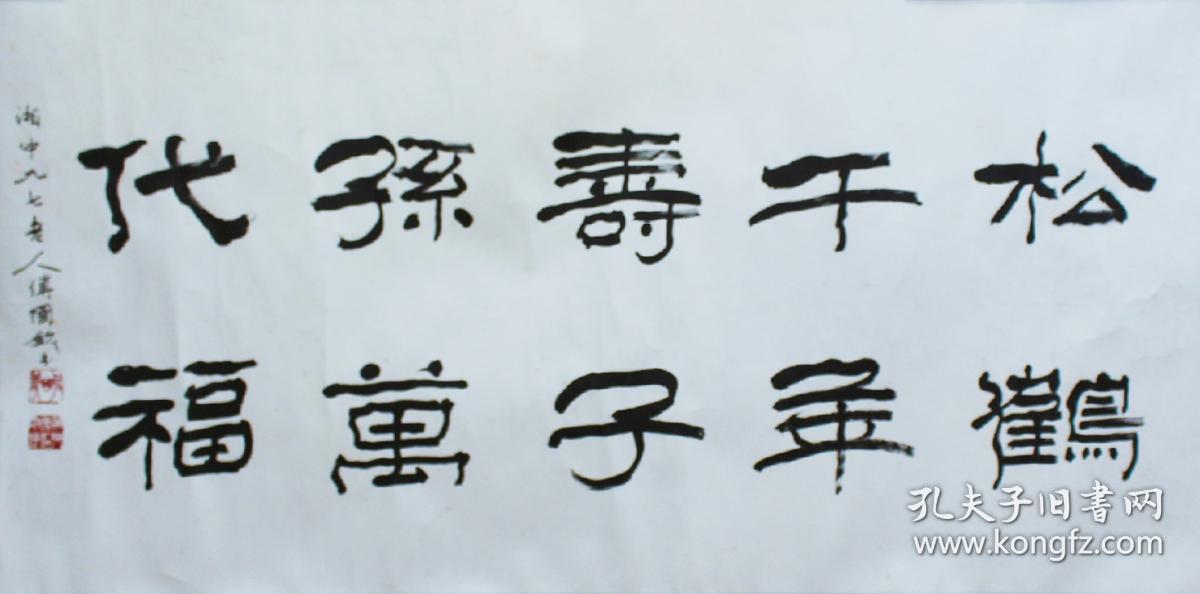 松鶴
千年
壽子
孫萬
代福
湘中九七老人
孔夫子旧书网
www.kongfz.com